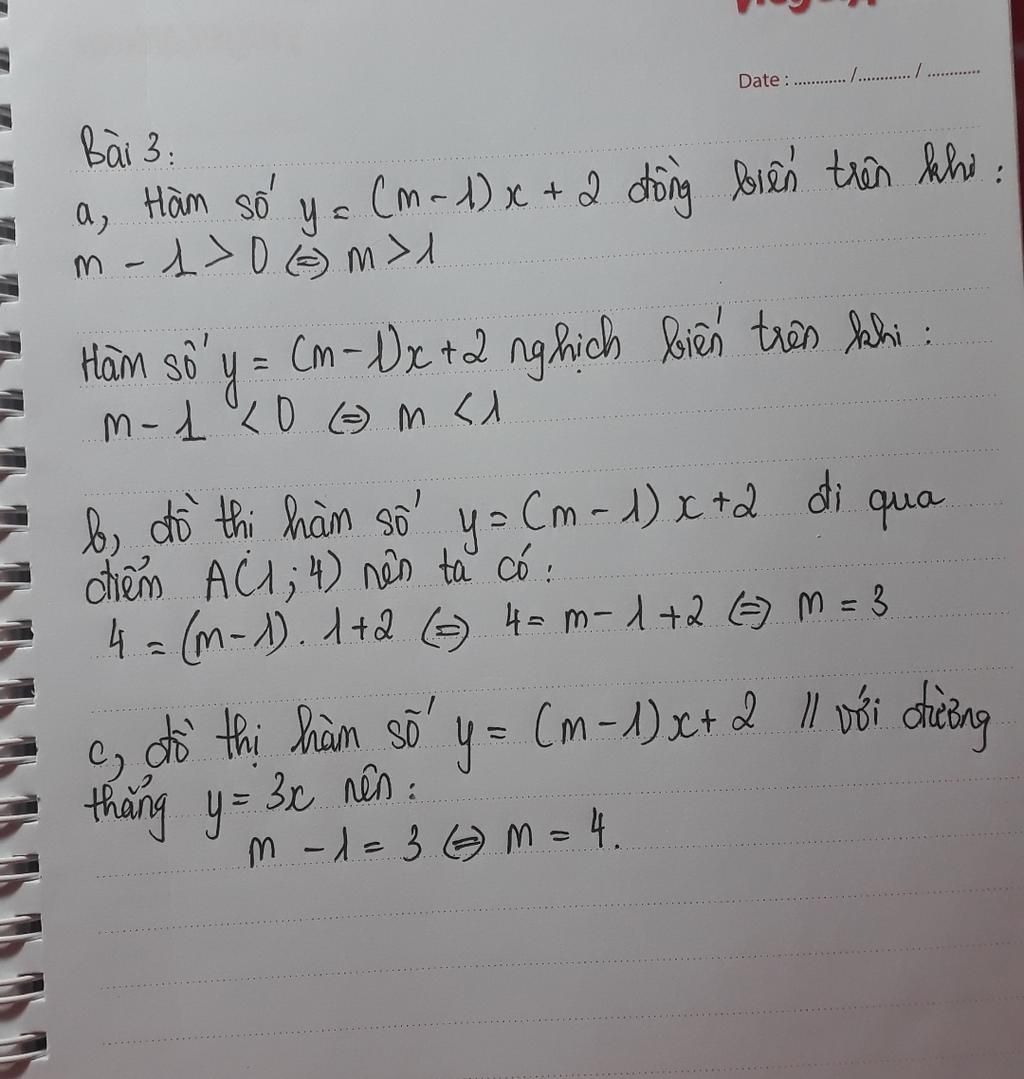 Date : ............ /............ / ............
Bài 3:
a, Hàm số y = (m-1)x + 2 đồng biến trên khi :
m - 1 > 0 ⇔ m > 1
Hàm số y = (m-1)x+2 nghịch biến trên khi :
m - 1 < 0 ⇔ m < 1
b, đồ thi hàm số y = (m-1)x+2 đi qua
điểm A(1;4) nên ta có :
4 = (m-1).1+2 ⇔ 4 = m-1+2 ⇔ m = 3
c, đồ thị hàm số y = (m-1)x+2 // với đường
thẳng y = 3x nên :
m - 1 = 3 ⇔ m = 4.